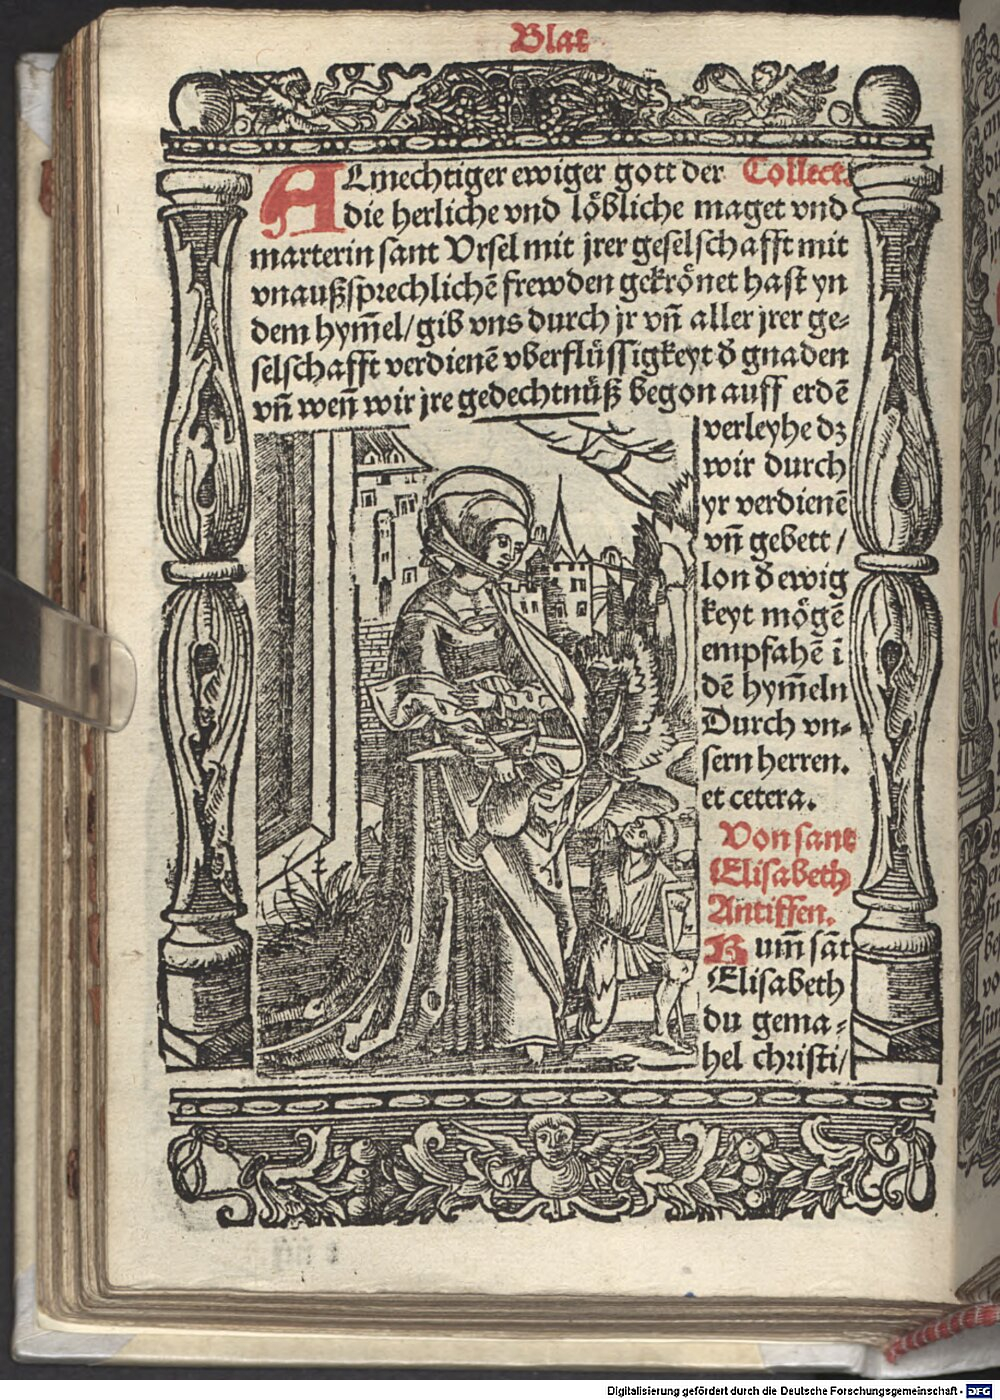 Blat
ALmechtiger ewiger gott der Collect.
die herliche vnd loͤbliche maget vnd
marterin sant Vrsel mit jrer geselschafft mit
vnaußsprechlichē frewden gekroͤnet hast yn
dem hym̄el/ gib vns durch jr vn̄ aller jrer ge-
selschafft verdienē vberfluͤssigkeyt d̄ gnaden
vn̄ wen̄ wir jre gedechtnuͤß begon auff erdē
verleyhe dz
wir durch
yr verdienē
vn̄ gebett /
lon d̄ ewig
keyt moͤgē
empfahē ī
dē hym̄eln
Durch vn-
sern herren.
et cetera.
Von sant
Elisabeth
Antiffen.
Kum̄ sāt
Elisabeth
du gema-
hel christi/
Digitalisierung gefördert durch die Deutsche Forschungsgemeinschaft - DFG